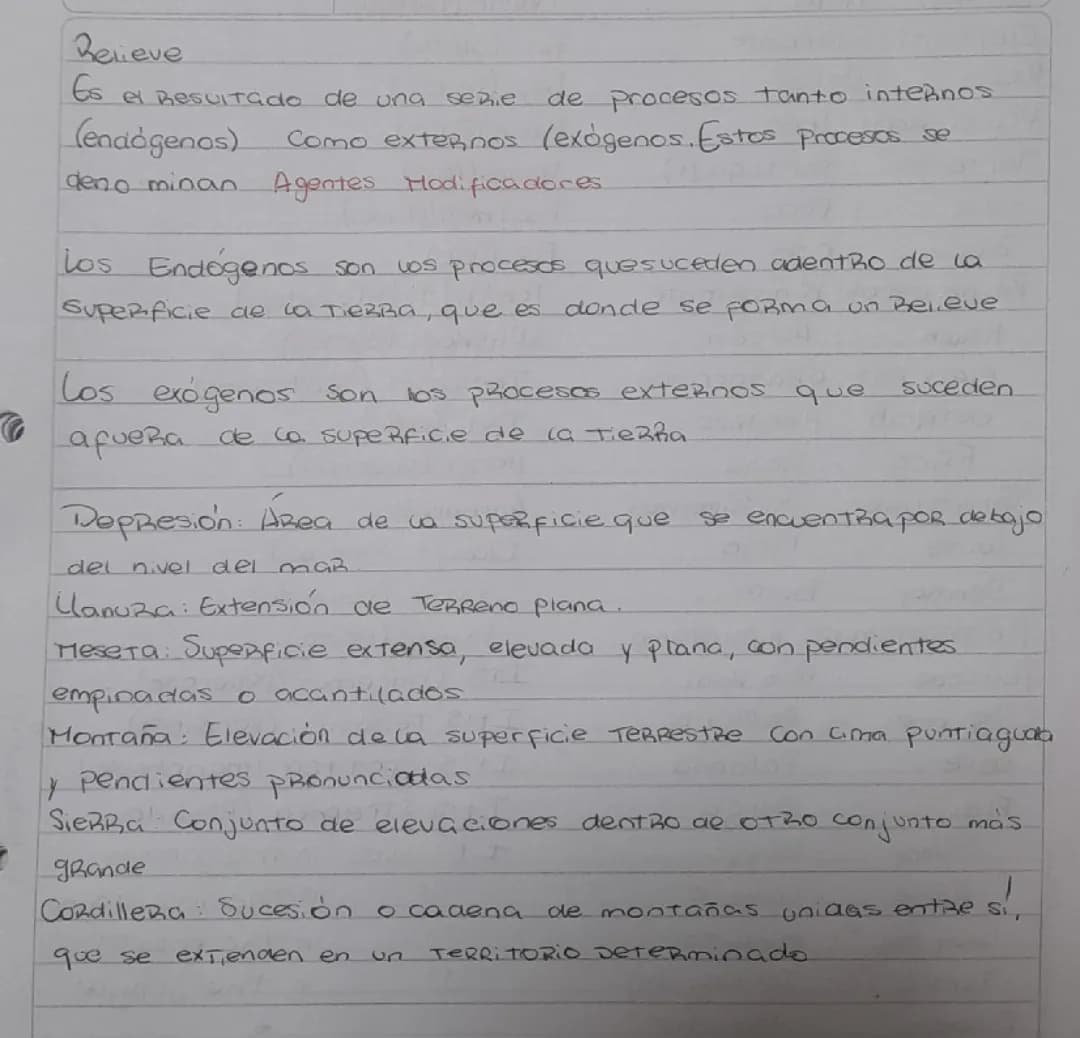 Relieve
Es el Resultado de una serie de procesos tanto internos
(endógenos) como externos (exógenos. Estos procesos se
deno minan Agentes Modificadores
Los Endógenos son los procesos que suceden adentro de la
superficie de la Tierra, que es donde se forma un Relieve
Los exógenos son los procesos externos que suceden
afuera de la superficie de la Tierra
Depresión: Área de la superficie que se encuentra por debajo
del nivel del mar
Llanura: Extensión de Terreno plana.
Meseta: Superficie extensa, elevada y plana, con pendientes
empinadas o acantilados
Montaña: Elevación de la superficie Terrestre con cima puntiaguda
y pendientes pronunciadas
Sierra: Conjunto de elevaciones dentro de otro conjunto más
grande
Cordillera: Sucesión o cadena de montañas unidas entre sí,
que se extienden en un Territorio Determinado